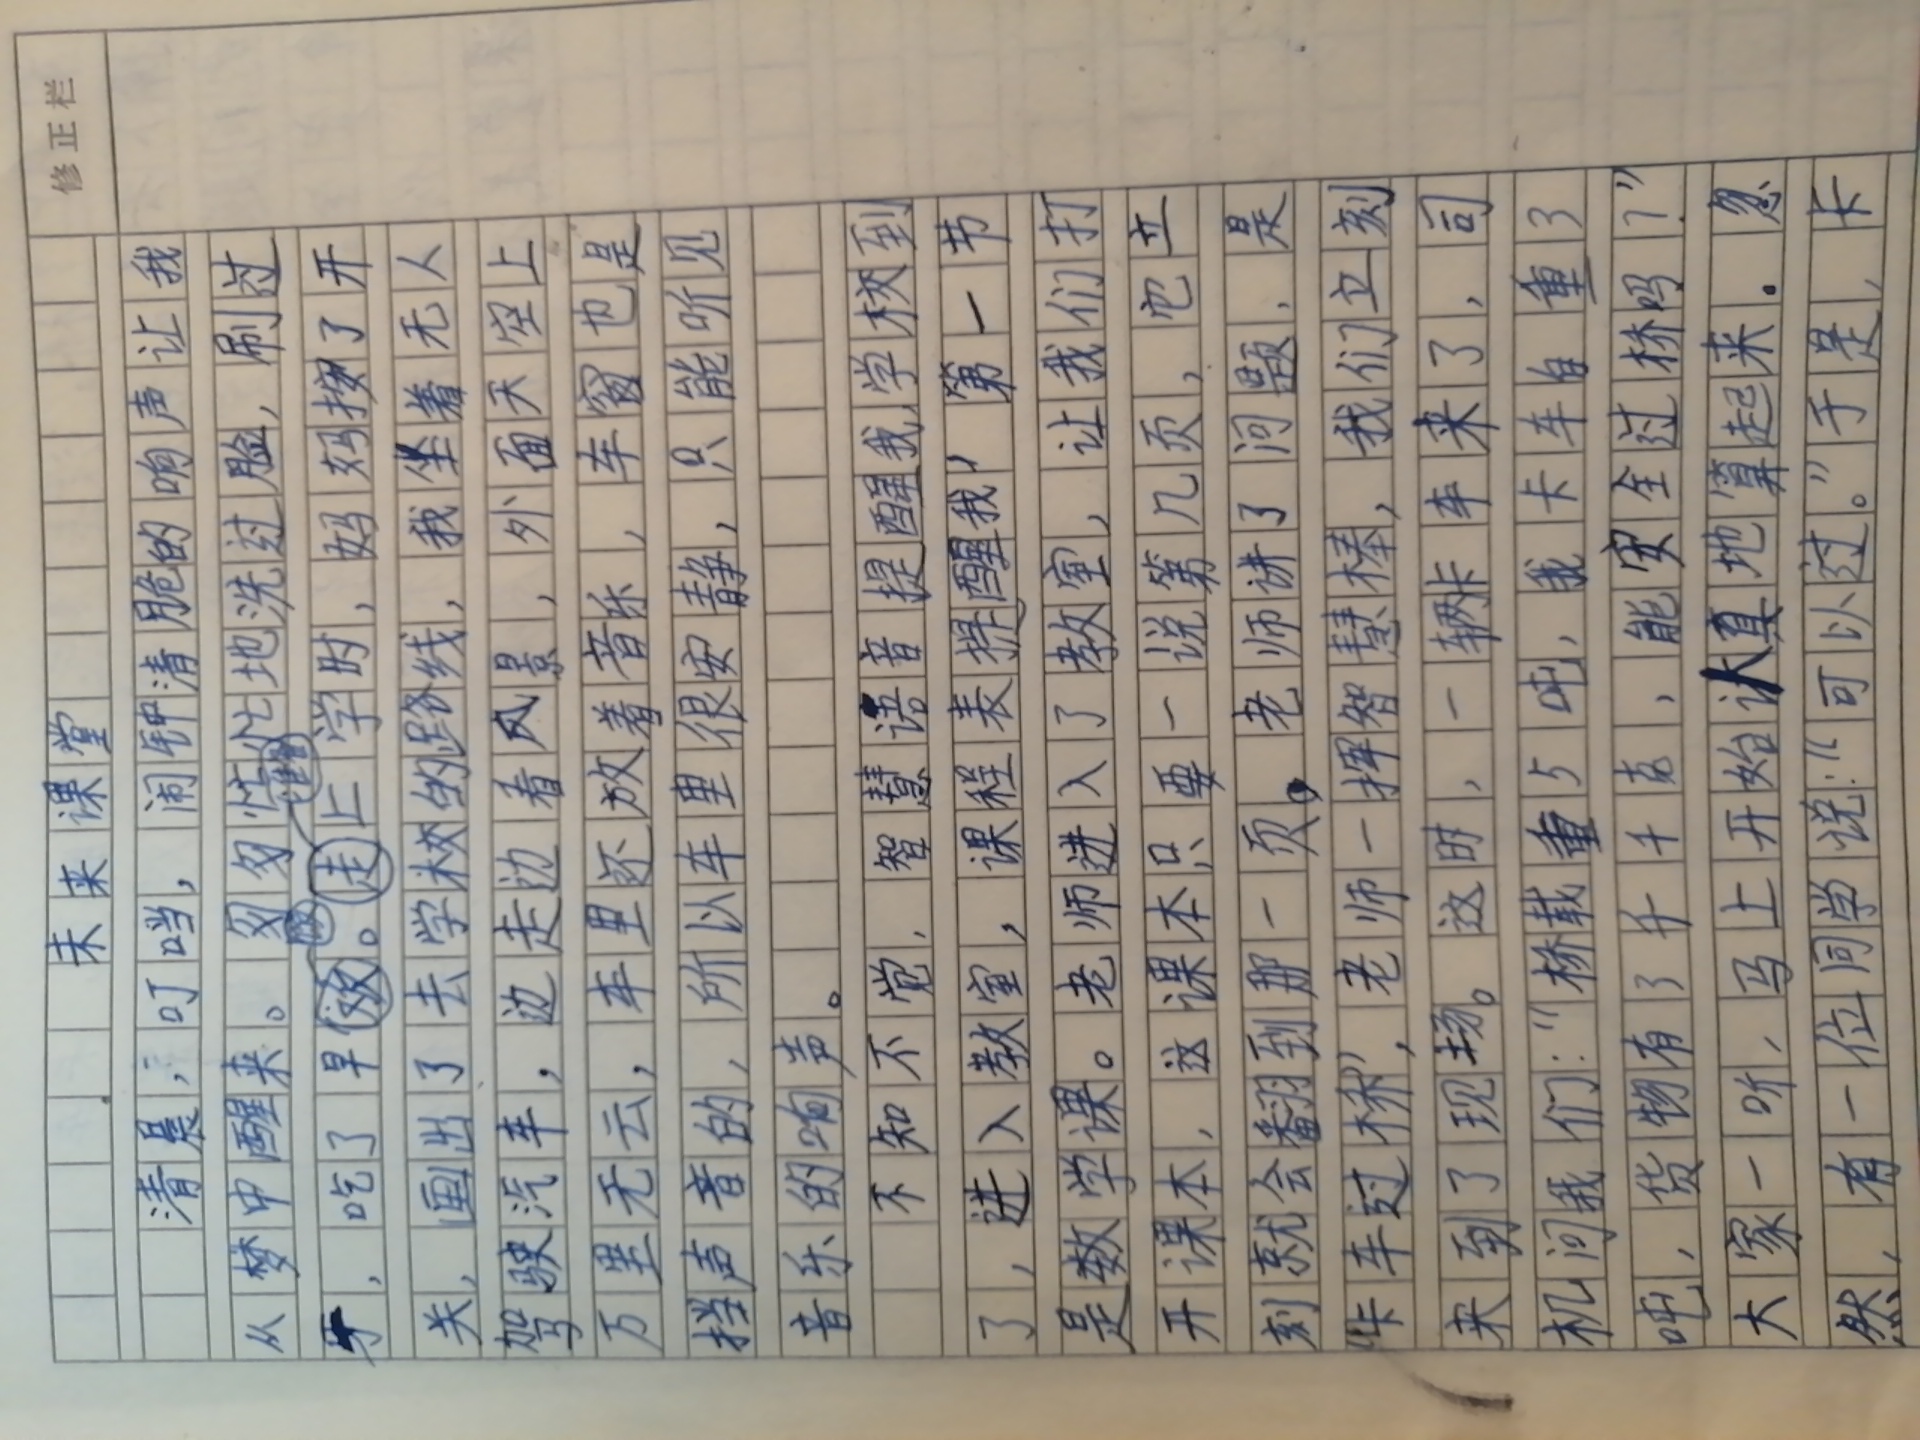 修正栏
未来课堂
清晨,叮当,闹钟清脆的响声让我
从梦中醒来。匆匆忙忙地洗过脸,刷过
牙,吃了早饭。走上学时,妈妈按了开
关,画出了去学校的路线,我坐着无人
驾驶汽车,边走边看风景,外面天空上
万里无云,车里还放着音乐,车窗也是
挡声音的,所以车里很安静,只能听见
音乐的响声。
不知不觉,智慧语音提醒我,学校到
了,进入教室,课程表提醒我,第一节
是数学课。老师进入了教室,让我们打
开课本,这课本只要一说第几页,它立
刻就会翻到那一页。老师讲了问题,是
“卡车过桥”,老师一挥智慧棒,我们立刻
来到了现场。这时,一辆卡车来了,司
机问我们:“桥载重5吨,我卡车自重3
吨,货物有了千千克,能安全过桥吗?”
大家一听,马上开始认真地算起来。忽
然,有一位同学说:“可以过。”于是,卡